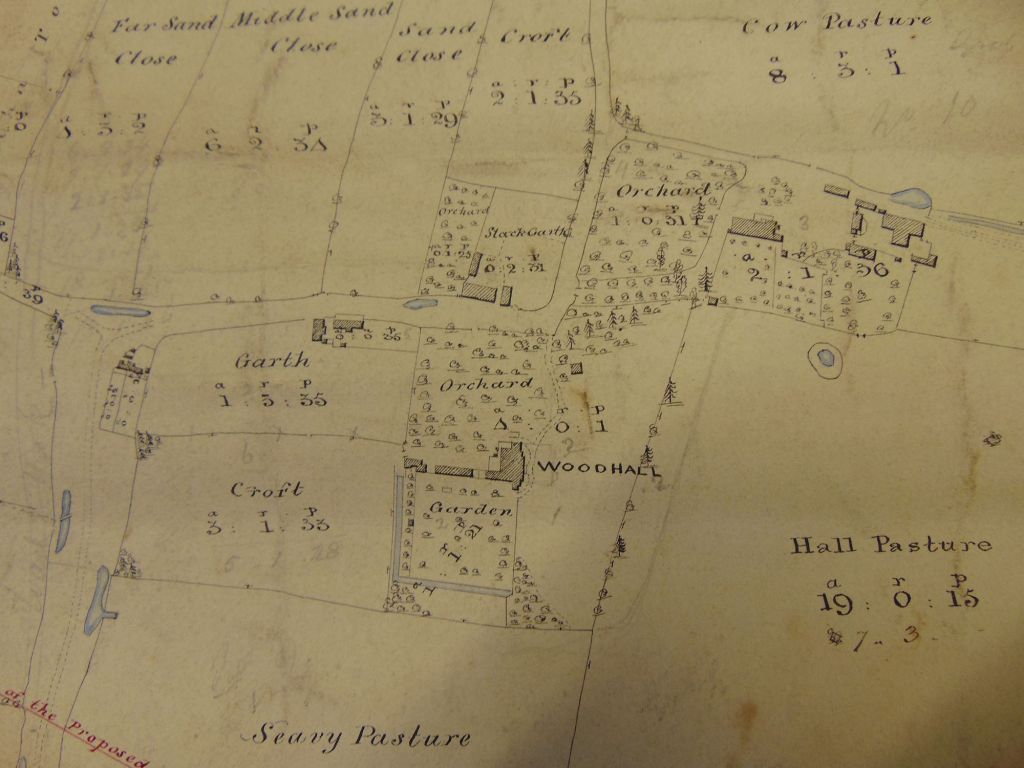 Far Sand
Close
Middle Sand
Close
6 : 2 : 34
Sand
Close
a r p
3 : 1 : 29
Croft
a r p
2 : 1 : 35
Cow Pasture
a r p
8 : 3 : 1
No 10
Orchard
a r p
1 : 0 : 31
Orchard
Stack Garth
a r p
0 : 2 : 31
a r p
2 : 1 : 36
3
39
Garth
a r p
1 : 3 : 35
Orchard
a r p
4 : 0 : 1
WOODHALL
Croft
a r p
3 : 1 : 33
Garden
Hall Pasture
a r p
19 : 0 : 15
7 .. 3
of the Proposed
Seavy Pasture